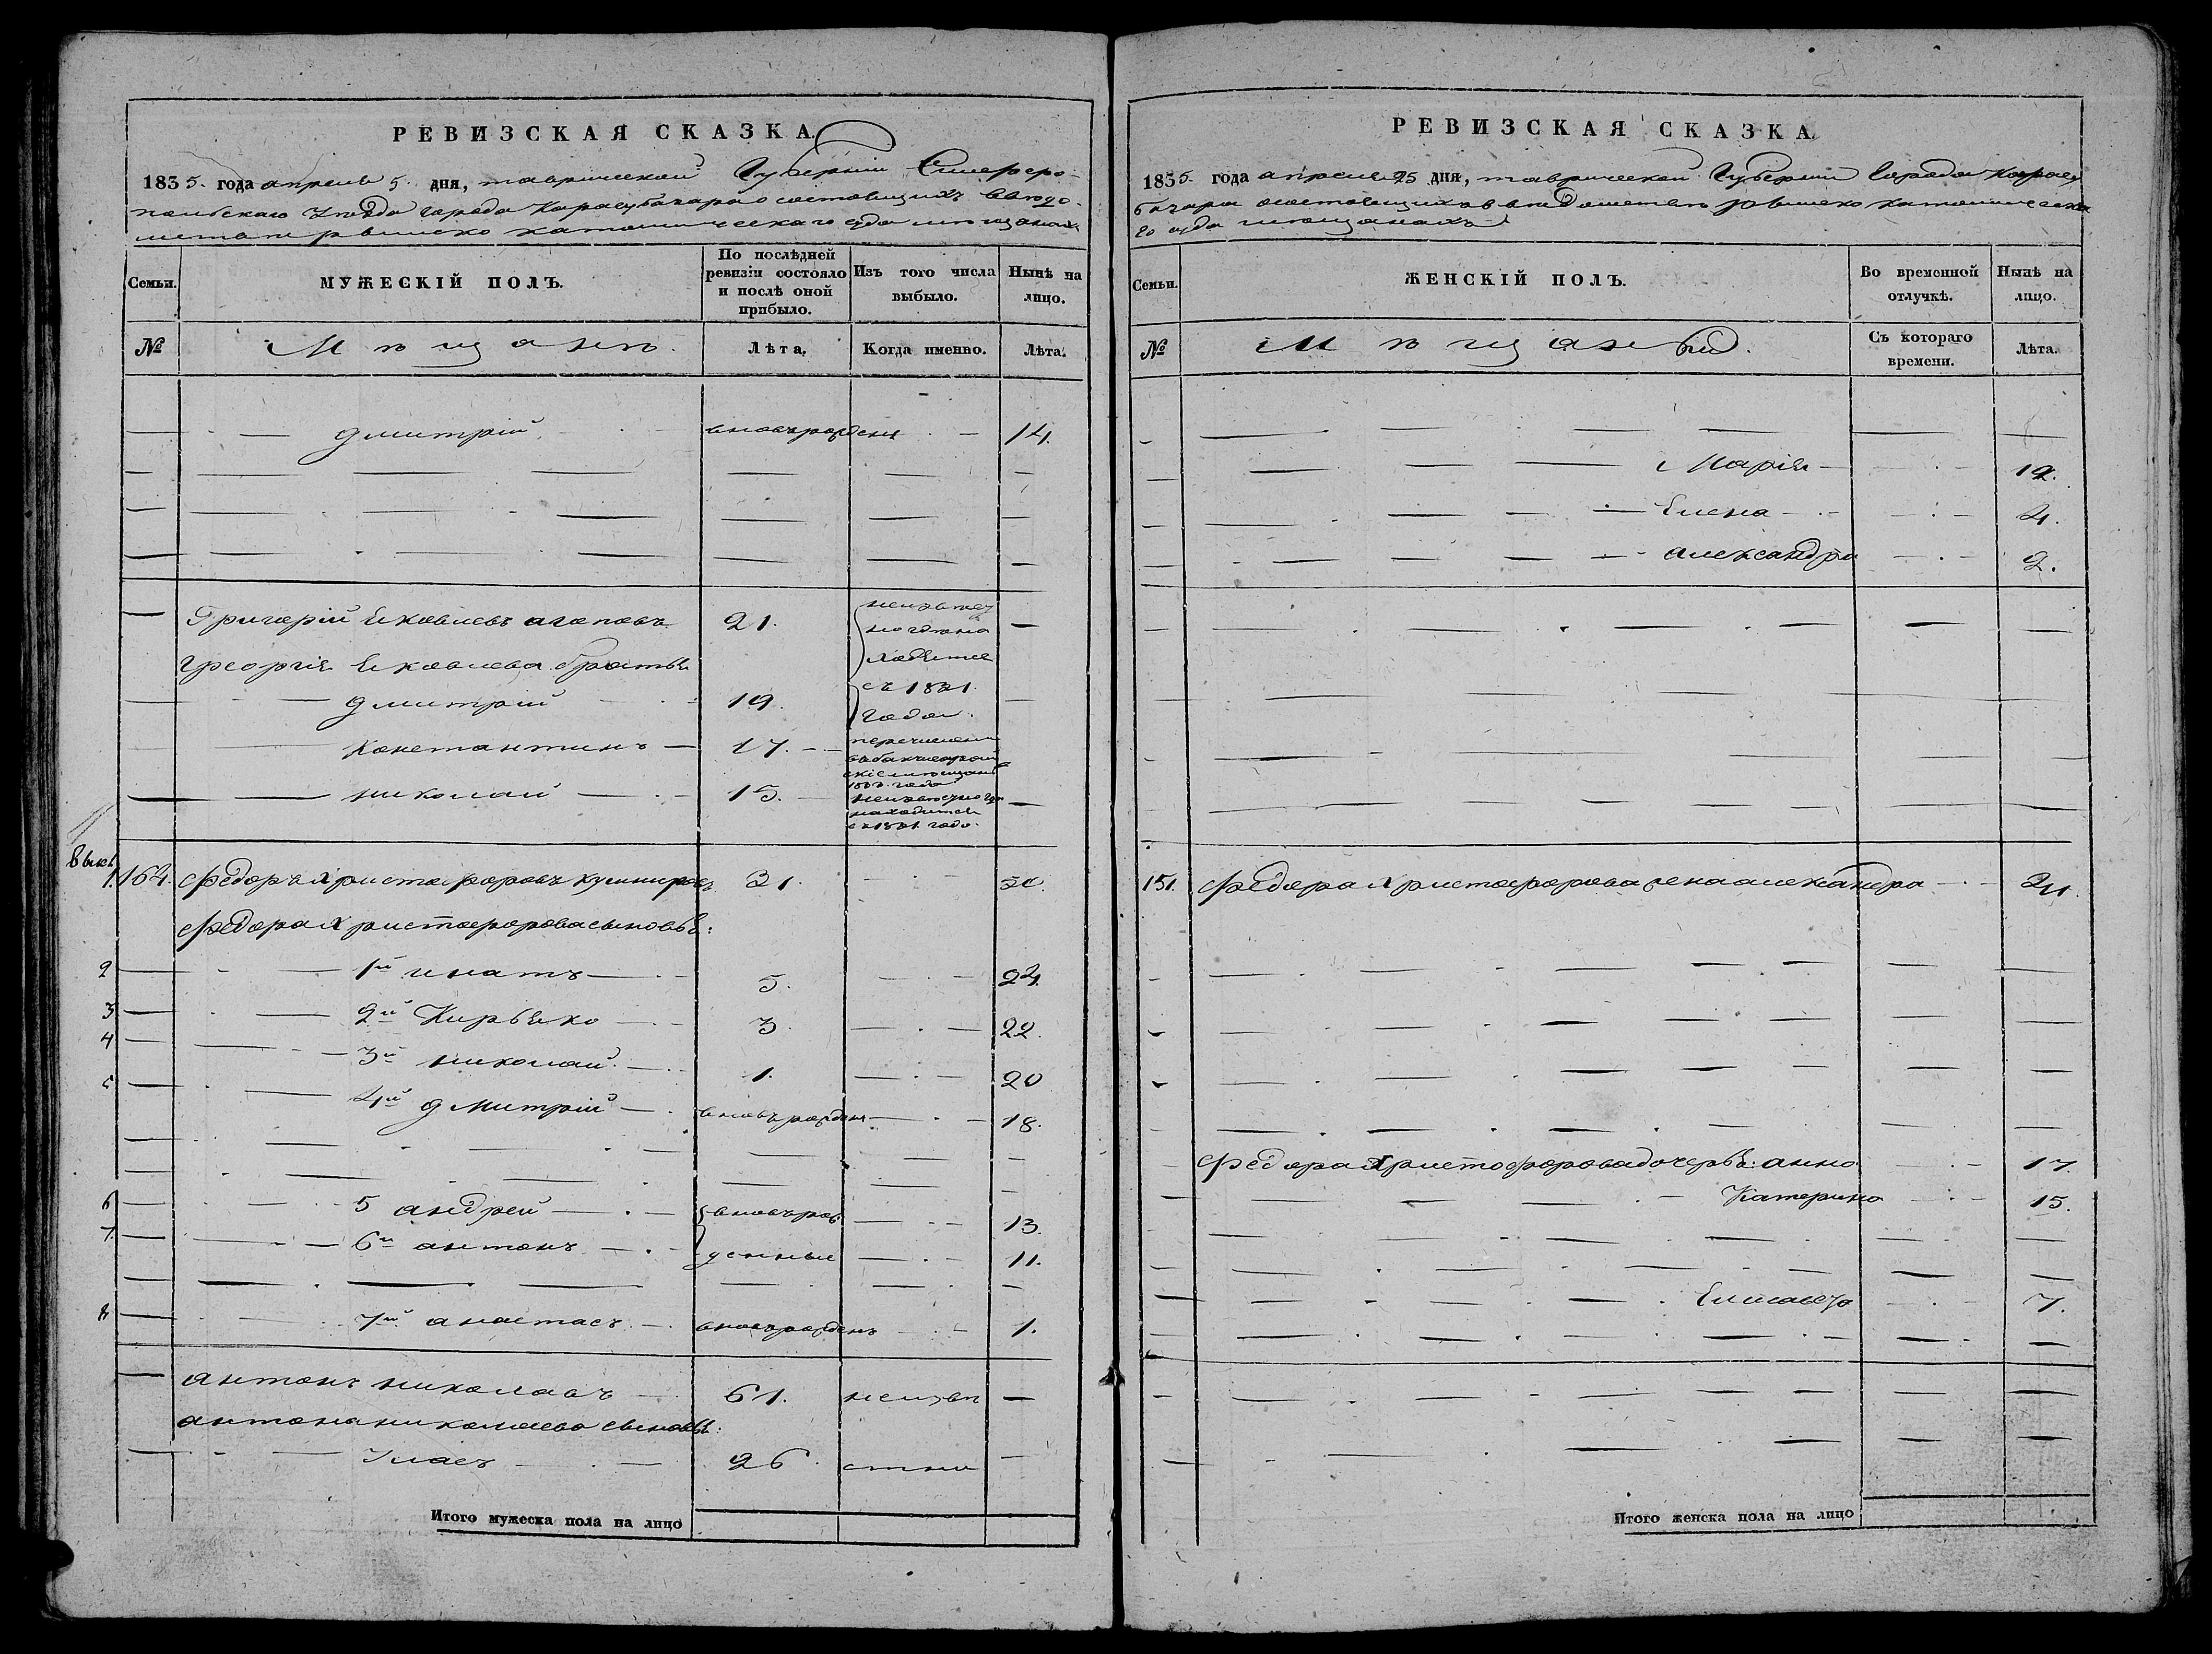 РЕВИЗСКАЯ СКАЗКА.
1835. года апреля 5. дня, таврической Губерніи Симферо-
польскаго Уезда города Карасубазара о состоящихъ въ ведо-
мстве римско католическаго суда мещанахъ
Семьи.
МУЖЕСКІЙ ПОЛЪ.
По послѣдней ревизіи состояло и послѣ оной прибыло.
Изъ того числа выбыло.
Нынѣ на лицо.
№
Мѣщанъ.
Лѣта.
Когда именно.
Лѣта.
Дмитрій вновьрожденъ 14.
Григорій Яковлевъ агоповъ 21. неизвес
но где на
ходятся
Григорія Яковлева братья
Дмитрій 19. съ 1821.
года.
Константинъ 17. перечислен
Николай 15. неизвестно где
находится
съ 1821 года.
1. 164. Федоръ Христофоровъ 31. 50.
Федора Христофорова сыновья:
2 1й игнатъ 5. 24.
3 2й Кирьяко 3. 22.
4 3й николай 1. 20
5 4й Дмитрій вновьрожденъ 18.
6 5 андрей вновьрож 13.
7. 6й антонъ денные 11.
8 7й анастасъ вновьрожденъ 1.
антонъ николаевъ 61. неизве
антона николаева сыновья:
26. стно
Итого мужеска пола на лицо
РЕВИЗСКАЯ СКАЗКА.
1835. года апреля 25 дня, таврической Губерніи Города Карасу
базара о состоящихъ в ведомстве римско католическа
го суда мещанахъ
Семьи.
ЖЕНСКІЙ ПОЛЪ.
Во временной отлучкѣ.
Нынѣ на лицо.
№
Съ котораго времени.
Лѣта.
Марія 12.
Елена 4.
александра 2.
151. Федора Христофорова жена александра
Федора Христофорова дочерѣ: анна 17.
Катерина 15.
Елисавета 7.
Итого женска пола на лицо